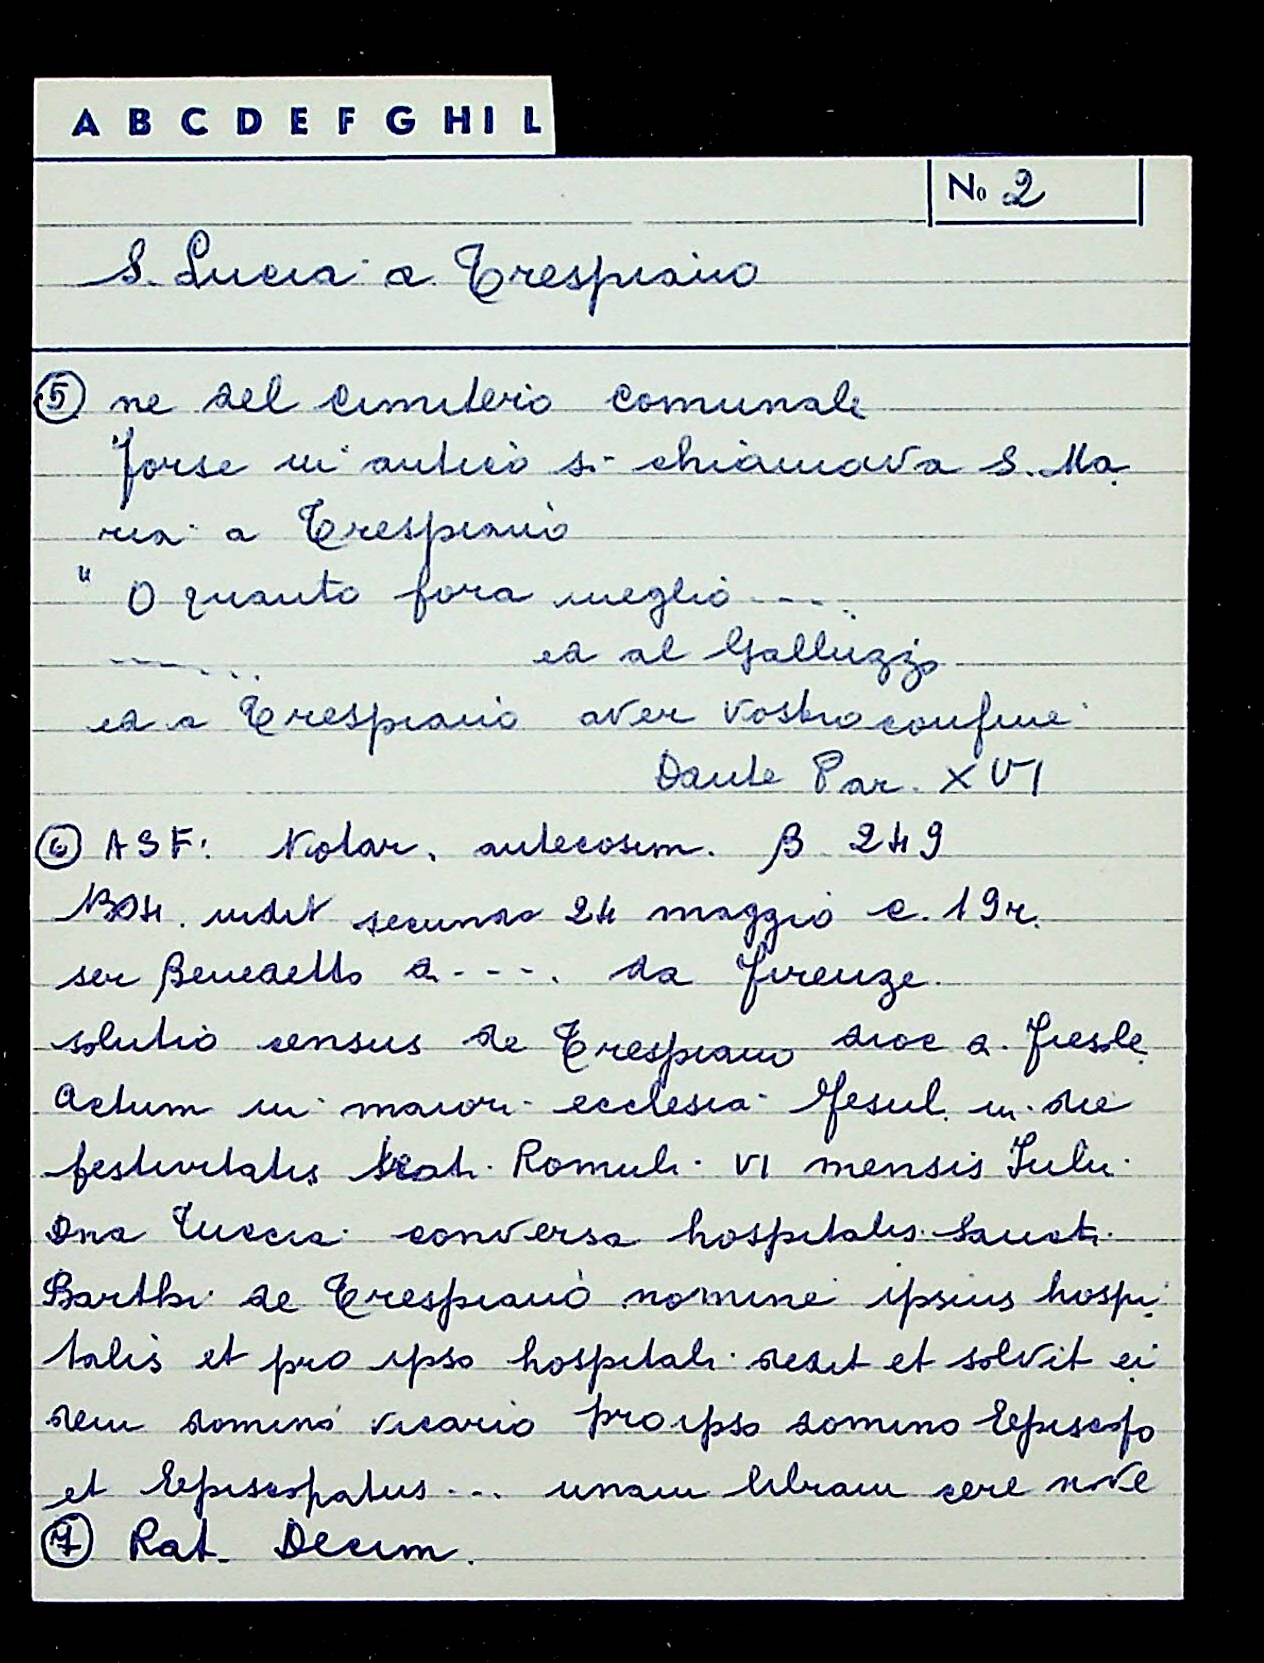 A B C D E F G H I L
No 2
S. Lucia a Trespiano
5 ne del cimitero comunale
Forse in antico si chiamava S. Ma
ria a Trespiano
" O quanto fora meglio ----.
------... ed al Galluzzo
ed a Trespiano aver vostro confine
Dante Par. XVI
6 ASF: Notar. antecosim. B 249
1304. indit secunda 24 maggio c. 19r.
ser Benedetto d---. da Firenze.
solutio census de Trespiano dioc d. Fiesole
Actum in maiori ecclesia Fesul. in die
festivitatis beati Romuli VI mensis Julii
Dna Tuccia conversa hospitalis Sancti
Barthi de Trespiano nomine ipsius hospi
talis et pro ipso hospitali dedit et solvit ei
dem domino vicario pro ipso domino Episcopo
et Episcopatus ... unam libram cere nove
7 Rat. Decim.